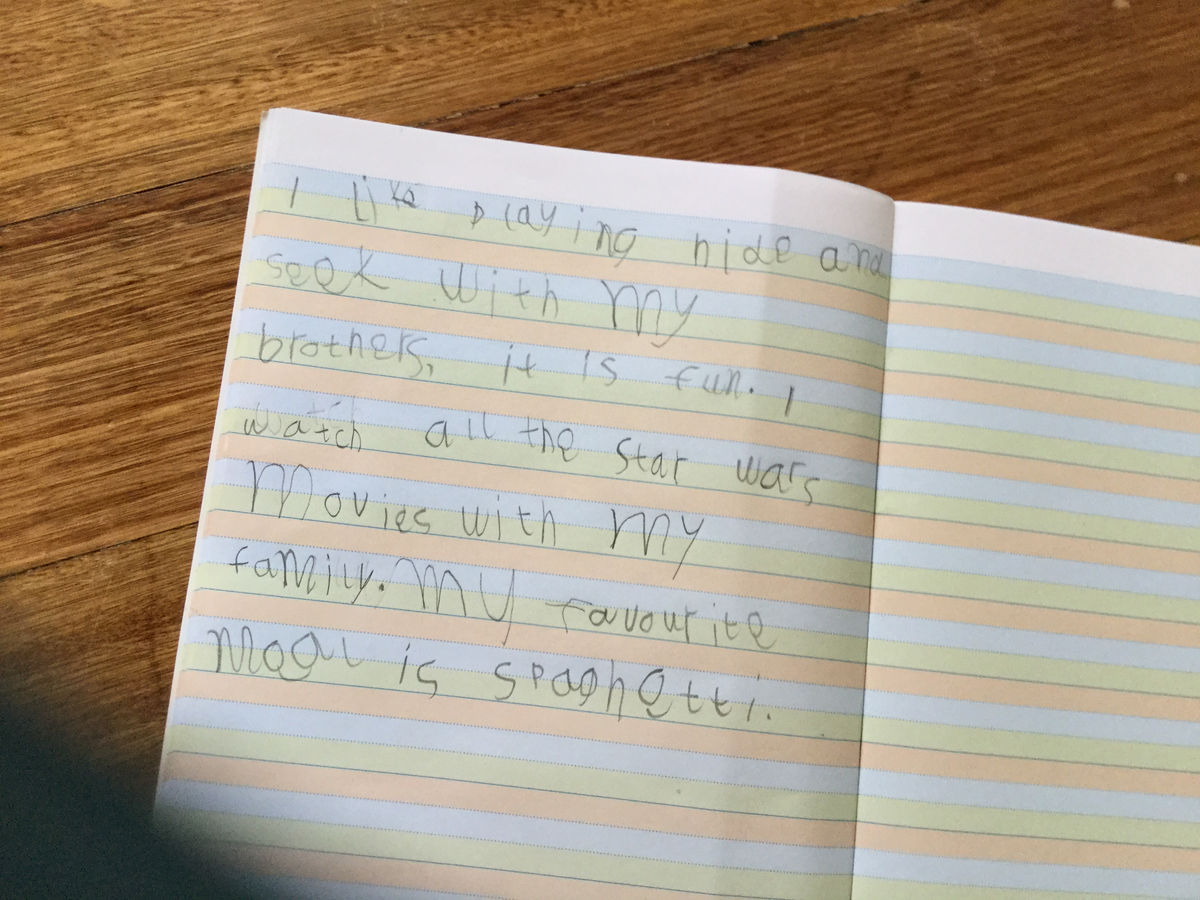 I like playing hide and
seek with my
brothers, it is fun. I
watch all the star wars
Movies with my
family. My favourite
Meal is spaghetti.